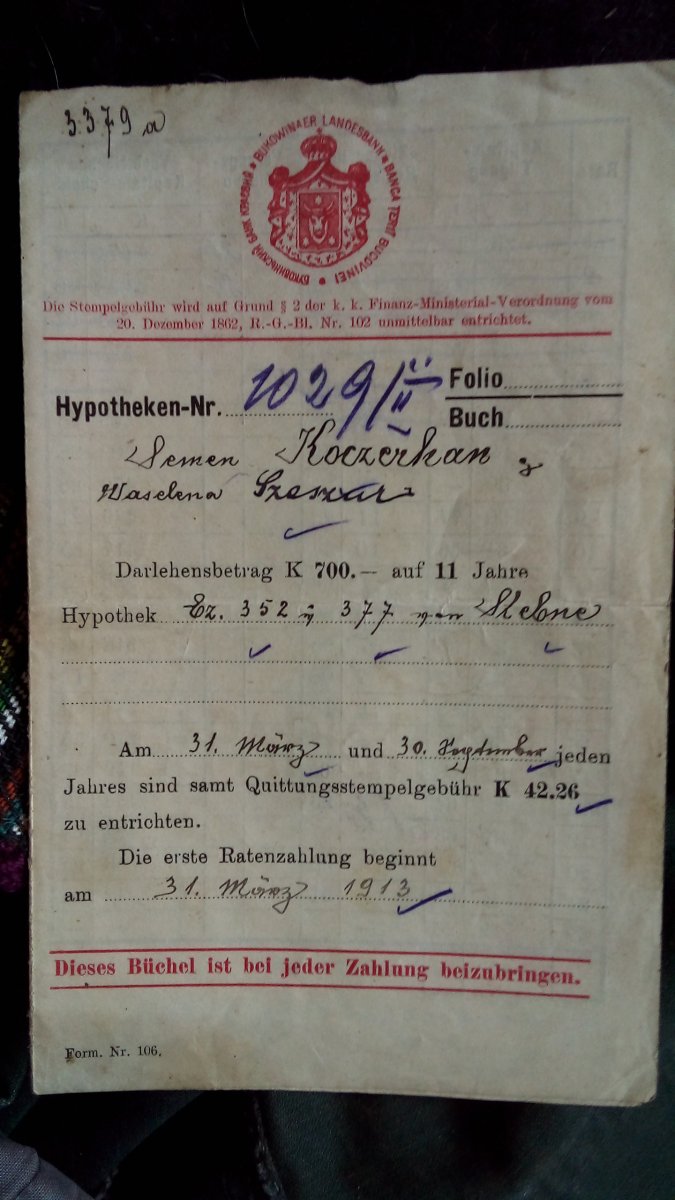 3379 a
BUKOWINAER LANDESBANK * BANCA ŢERII BUCOVINEI * БУКОВИНЬСКИЙ БАНК КРАЄВИЙ *
Die Stempelgebühr wird auf Grund § 2 der k. k. Finanz-Ministerial-Verordnung vom
20. Dezember 1862, R.-G.-Bl. Nr. 102 unmittelbar entrichtet.
Hypotheken-Nr. 1029/II
Folio
Buch
Semen Koczerhan
Waselena
Darlehensbetrag K 700.— auf 11 Jahre
Hypothek Ez. 352 u 377 von Stebne
Am 31. März und 30. September jeden
Jahres sind samt Quittungsstempelgebühr K 42.26
zu entrichten.
Die erste Ratenzahlung beginnt
am 31. März 1913
Dieses Büchel ist bei jeder Zahlung beizubringen.
Form. Nr. 106.